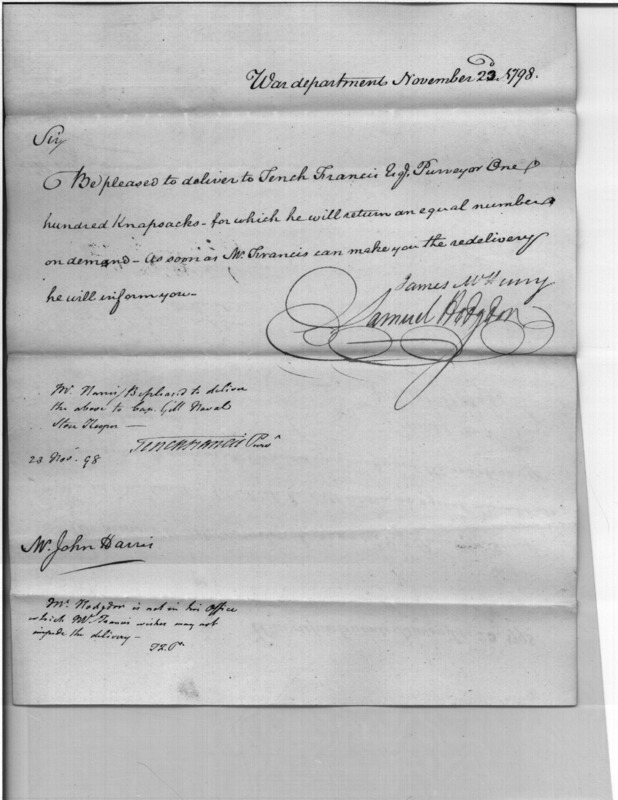 War department November 23d. 1798.
Sir
Be pleased to deliver to Tench Francis Esq. Purveyor One
hundred Knapsacks - for which he will return an equal number
on demand - As soon as Mr. Francis can make you the redelivery
he will inform you -
James McHenry
Samuel Hodgdon
Mr. Harris Be pleased to deliver
the above to Cap. Gill Naval
Store Keeper -
Tench Francis Purvr
23 Nov. 98
Mr. John Harris
Mr. Hodgdon is not in his Office
which Mr. Francis wishes may not
impede the delivery -